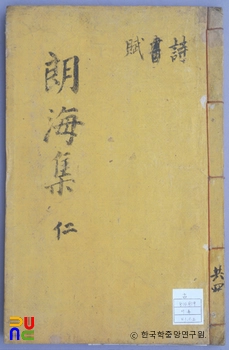 詩
書
賦
朗海集 仁
共四
PUNC
ⓒ한국학중앙연구원